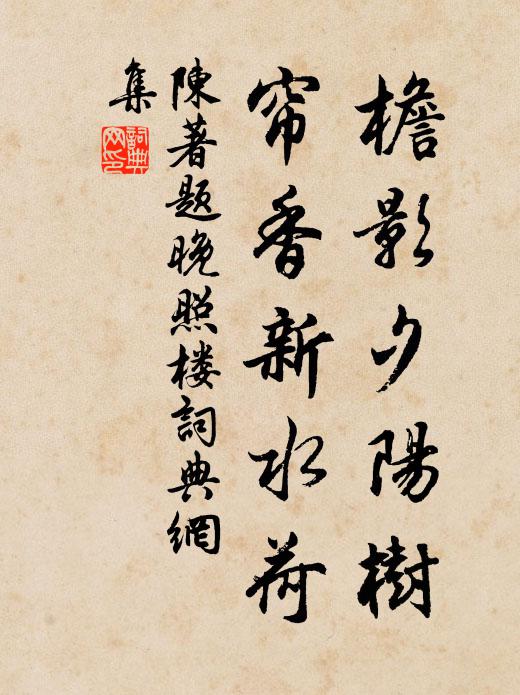 檐影夕陽樹
帘香新水荷
陳著題晚照楼詞典網
集
詞典网印